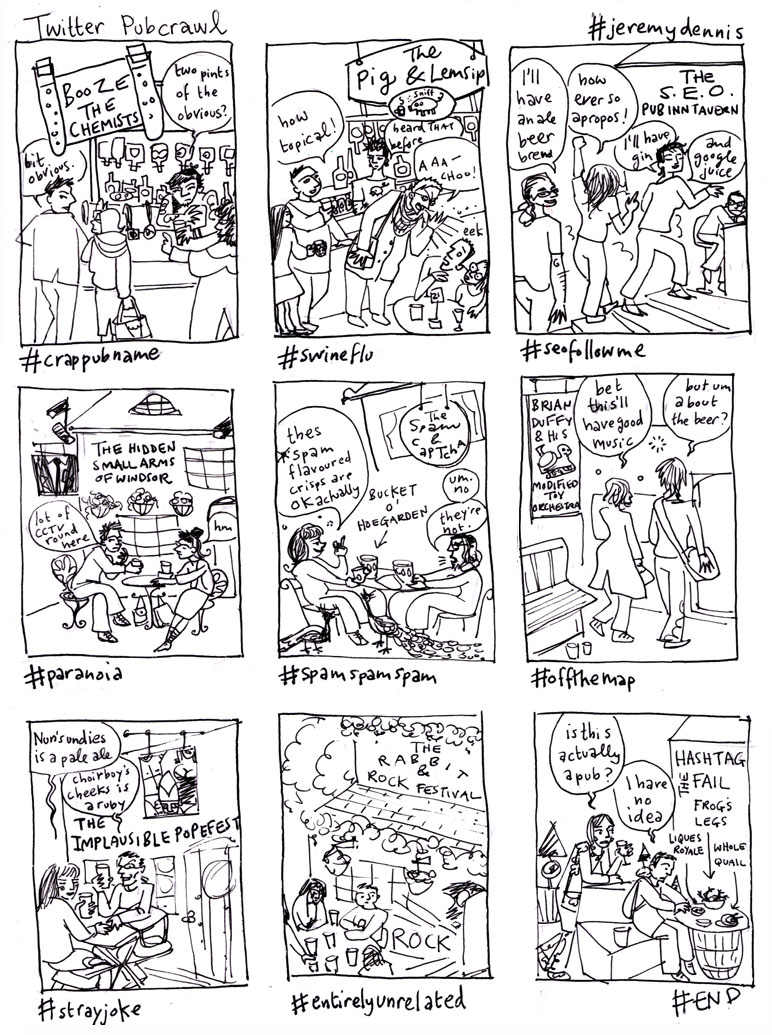 Twitter Pubcrawl
#jeremydennis
BOOZE
THE
CHEMISTS
two pints
of the
obvious?
bit
obvious.
#crappubname
The
Pig & Lemsip
sniff
how
topical!
heard THAT
before
AAA-
CHOO!
eek
#swineflu
I'll
have
an ale
beer
brend
how
ever so
apropos!
THE
S.E.O.
PUB INN TAVERN
I'll have
gin
and
google
juice
#seofollowme
THE HIDDEN
SMALL ARMS
OF WINDSOR
lot of
CCTV
round
here
hm
#paranoia
thes
spam
flavoured
crisps are
OK actually
The
Spam
& CAPTCHA
BUCKET
O'
HOEGARDEN
um.
no
they're
not.
#spamspamspam
BRIAN
DUFFY
& HIS
MODIFIED
TOY
ORCHESTRA
bet
this'll
have good
music
but um
about
the beer?
#offthemap
Nun's undies
is a pale ale
choirboy's
cheeks is
a ruby
THE
IMPLAUSIBLE POPEFEST
#strayjoke
THE
RABBIT
&
ROCK FESTIVAL
ROCK
#entirelyunrelated
is this
actually
a pub?
I have
no
idea
THE
HASHTAG
FAIL
FROG'S
LEGS
LIQUES
ROYALE
WHOLE
QUAIL
#END